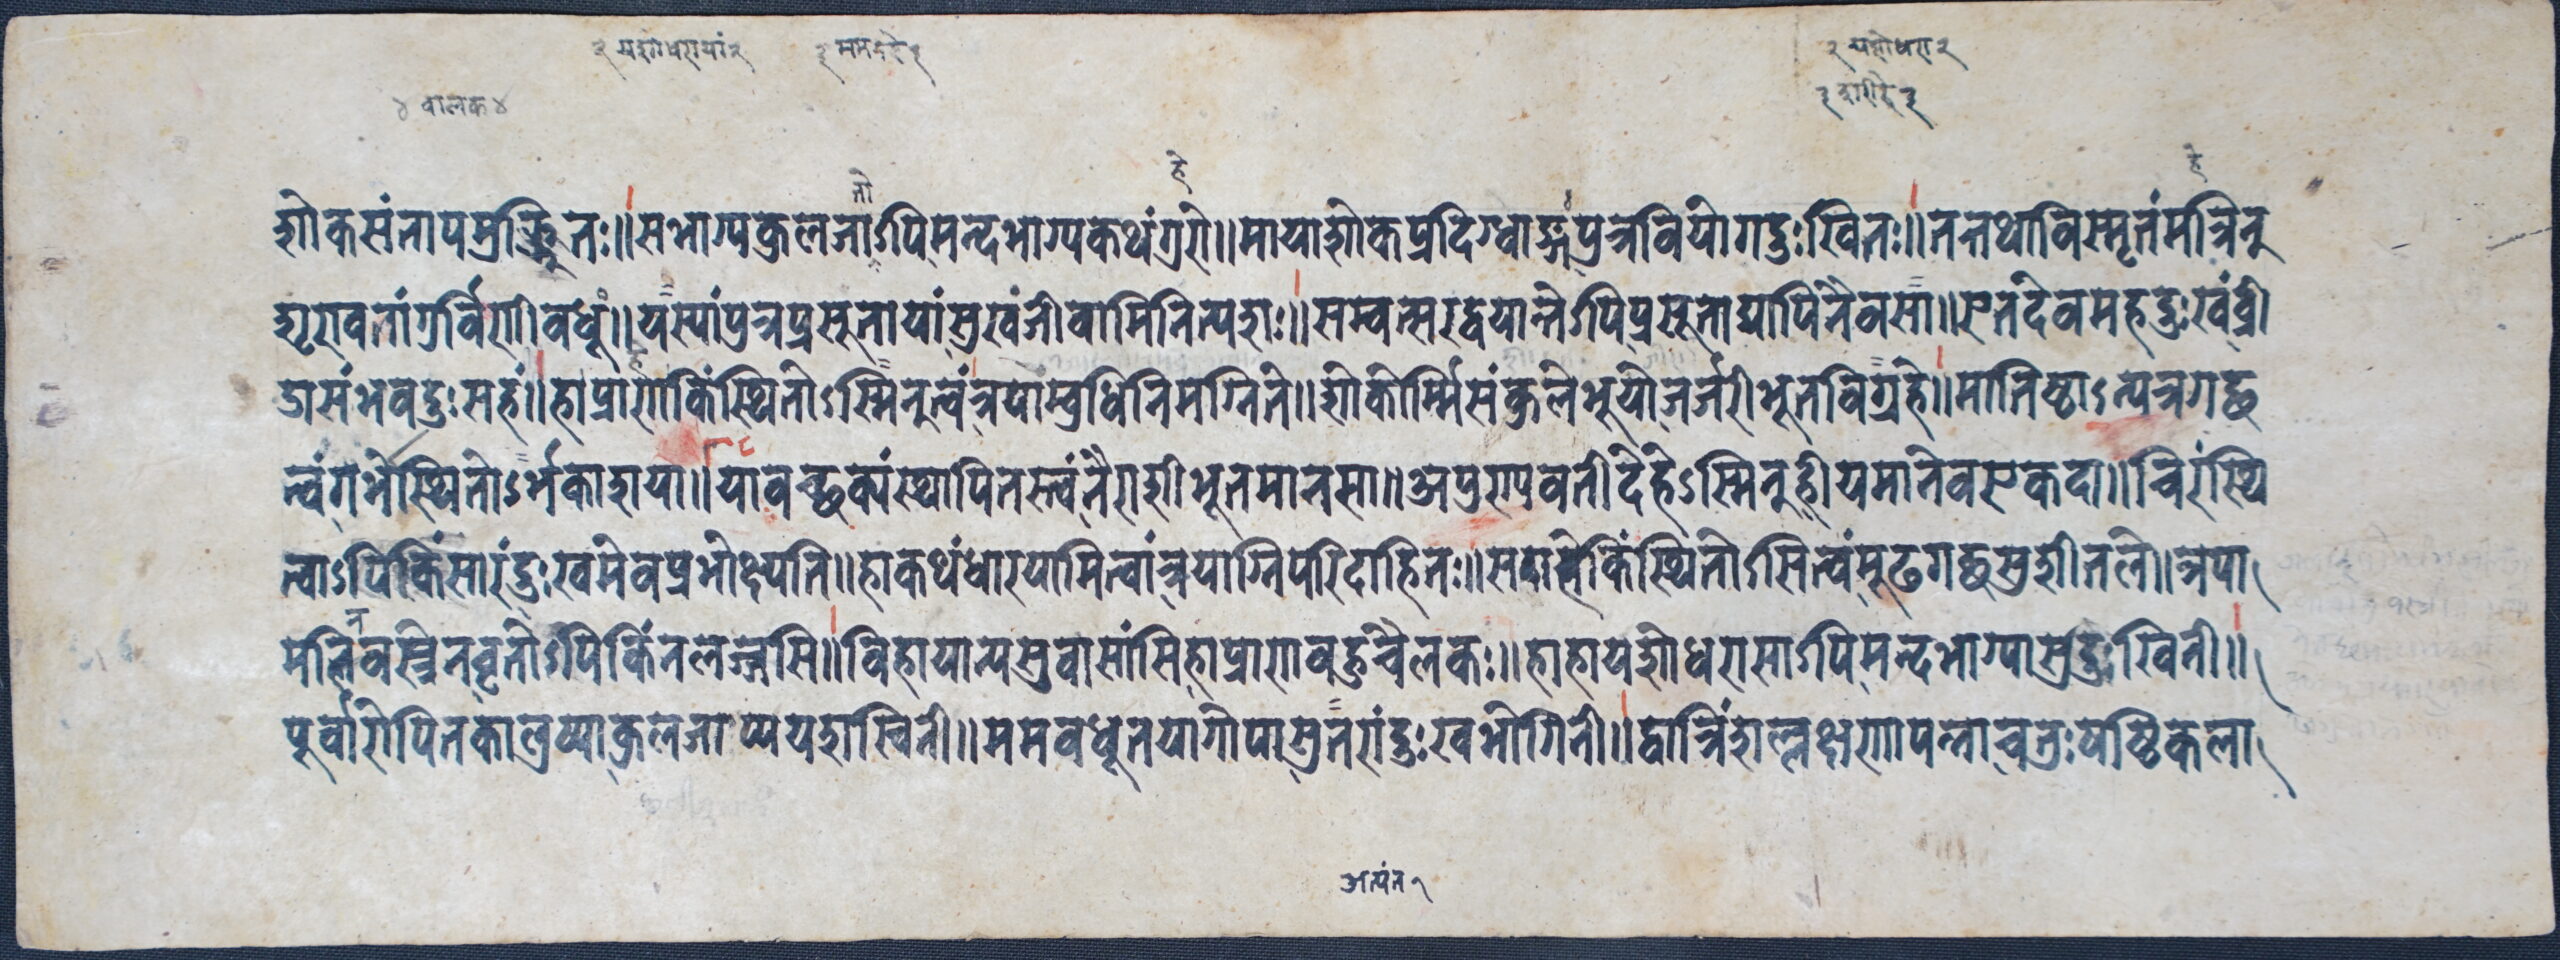 २ यशोधरायां २
३ ममदेहे ३
२ यशोधरा २
४ बालक ४
३ दासीहे ३
तो
हे
हे
शोकसंतापमूर्च्छितः॥सभाग्यकुलजाऽपिमन्दभाग्यकथंगुरो॥मायाशोकप्रदिग्धाङ्गंपुत्रवियोगदुःखितः॥तत्तथाविस्मृतंमन्त्रिन्
शृरावतांगर्विणीवधूं॥यस्यांपुत्रप्रसूतायांसुखंजीवामिनित्यशः॥सम्वत्सरद्वयान्तेऽपिप्रसूताद्यापिनैवसा॥एतंदेवमहद्दुःखंव्री
डासंभवदुःसहं॥हाप्राणकिंस्थितोऽस्मिन्त्वंत्रपाम्बुधिनिमग्निते॥शोकोर्म्मिसंकुलेभूयोजर्जरीभूतविग्रहे॥मातिष्ठाऽत्यत्रगच्छ
त्वंगर्भेस्थितोऽर्भकाशया॥यावच्छक्यंस्थापितस्त्वंनैराशीभूतमानसा॥अपुण्यवतीदेहेऽस्मिन्हीयमानेवएकदा॥चिरंस्थि
त्वाऽपिकिंसारंदुःखमेवप्रभोक्ष्यति॥हाकथंधारयामित्वांत्रपाग्निपरिदाहितः॥सदासेकिंस्थितोऽसित्वंमूढगच्छसुशीतले॥त्रपा
न
मलिवस्त्रेनवृतोऽपिकिंनलज्जसि॥विहायान्यसुवासांसिहाप्राणबहुचैलकः॥हाहायशोधरासाऽपिमन्दभाग्यासुदुःखिनी॥
पूर्वारोपितकालुष्याकुलजाप्ययशस्विनी॥ममवधूतयागोपासुतरांदुःखभोगिनी॥द्वात्रिंशल्लक्षणापन्नाचतुःषष्ठिकला
अत्यंत १